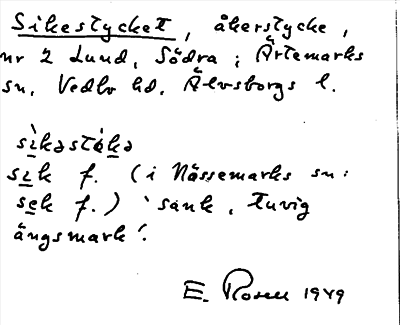 Sikestycket, åkerstycke,
nr 2 Lund, Södra i Ärtemarks
sn, Vedbo hd, Älvsborgs l.
sìkəstákə
sik f. (i Nössemarks sn:
sek f.) 'sank, tuvig
ängsmark'.
E. Rosell 1949